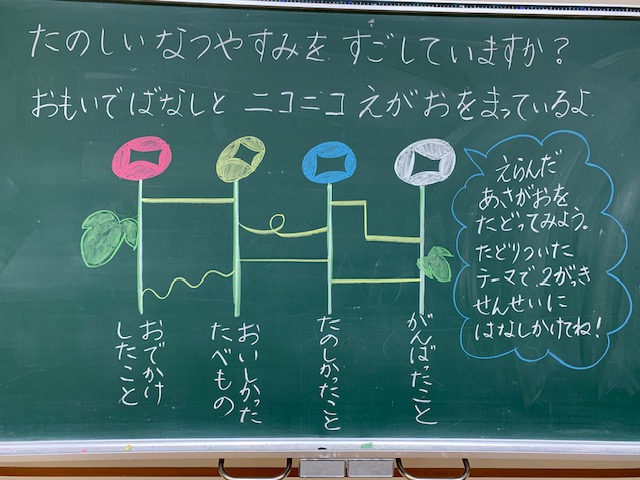 たのしいなつやすみを すごしていますか？
おもいでばなしと ニコニコ えがおをまっているよ
えらんだ
あさがおを
たどってみよう。
たどりついた
テーマで、2がっき
せんせいに
はなしかけてね！
おでかけ
したこと
おいしかった
たべもの
たのしかったこと
がんばったこと